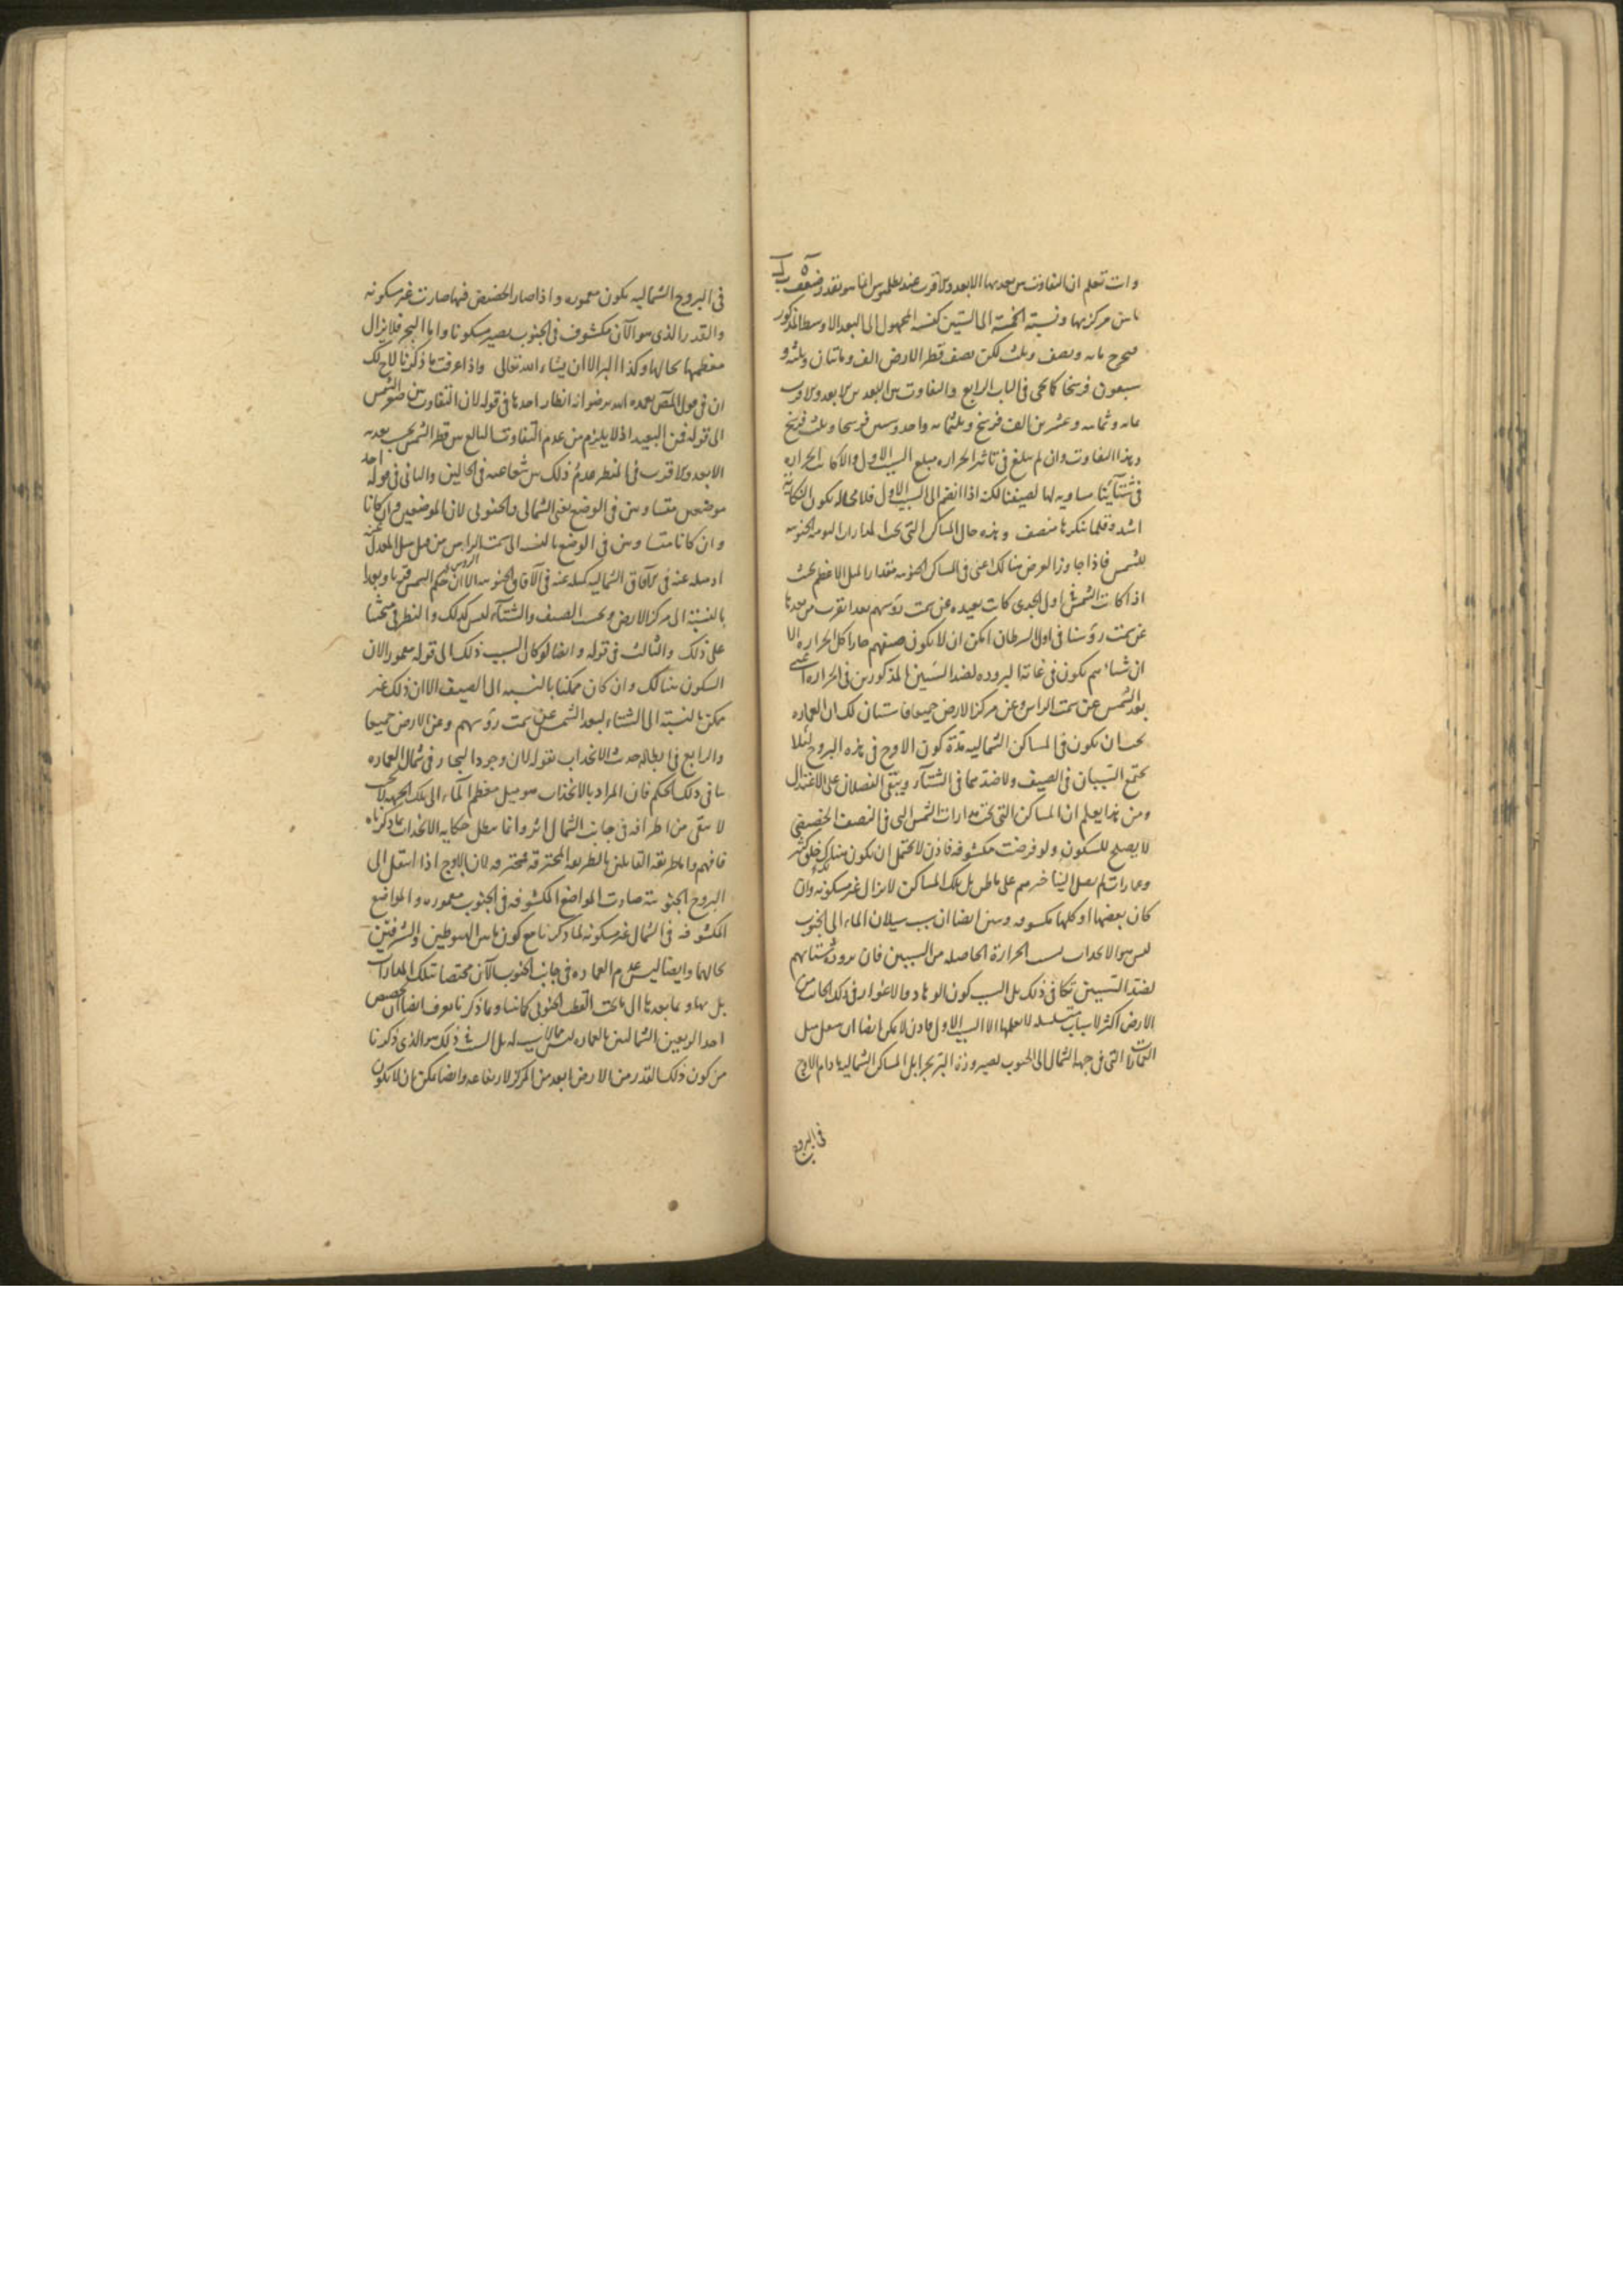 وانت تعلم ان التفاوت بين بعديها الابعد والاقرب عند بطلميوس انما هو بقدر ضعف
ما بين مركزيها ونسبة الخمسة الى الستين كنسبة المجهول الى البعد الاوسط المذكور
مائه ونصف وثلث لكن نصف قطر الارض الف ومائتان وثلثه و
سبعون فرسخا كما يجى فى الباب الرابع والتفاوت بين البعدين الابعد والاقرب
مائه وثمانيه وعشرين الف فرسخ وثلثمائه واحد وستين فرسخا وثلث فرسخ
وهذا التفاوت وان لم يبلغ فى تاثير الحراره مبلغ السبب الاول والا كانت الحراره
فى شتآئنا مساويه لها لصيفنا لكنه اذا انضم الى السبب الاول فلا محاله يكون النكايه
اشد وقلما ينكرها منصف وهذه حال المساكن التى تحت المدارات اليوميه الجنوبيه
للشمس فاذا جاوز العرض هنالك اعنى فى المساكن الجنوبيه مقدار الميل الاعظم بحيث
اذا كانت الشمس فى اول الجدى كانت بعيده عن سمت رؤسهم بعدا يقرب من بعدها
عن سمت رؤسنا فى اول السرطان امكن ان لا يكون صيفهم حارا كل الحراره الا
ان شتائهم يكون فى غاية البروده لضد السببين المذكورين فى الحراره اعنى
بعد الشمس عن سمت الراس وعن مركز الارض جميعا فاستبان لك ان العماره
يجب ان يكون فى المساكن الشماليه مدة كون الاوج فى هذه البروج لئلا
يجتمع السببان فى الصيف ولا ضدهما فى الشتآء ويبقى الفصلان على الاعتدال
ومن هذا يعلم ان المساكن التى تحت مدارات الشمس التى فى النصف الحضيضى
لا يصلح للسكون ولو فرضت مكشوفه فاذن لا يحتمل ان يكون هناك خلق كثير
وعمارات لم يصل الينا خبرهم على ما ظن بل تلك المساكن لا يزال غير مسكونه وان
كان بعضها او كلها مكشوفه وتبين ايضا ان سبب سيلان الماء الى الجنوب
ليس هو الانجذاب بسبب الحرارة الحاصله من السببين فان برودة شتائهم
لضد السببين تكافى ذلك بل السبب كون الوهاد والاغوار فى ذلك الجانب من
الارض اكثر لاسباب متسلسله لا يعلمها الا السبب الاول فاذن لا يمكن ايضا ان
التى فى جهة الشمال الى الجنوب بصيرورة البر بحرا بل المساكن الشماليه ما دام الاوج
فى البروج
فى البروج الشماليه يكون معموره واذا صار الحضيض فيها صارت غير مسكونه
والقدر الذى هو الآن مكشوف فى الجنوب يصير مسكونا واما البحر فلا يزال
معظمها بحالها وكذا البر الا ان يشاء الله تعالى واذا عرفت ما ذكرنا لاح لك
ان فى قول المص تغمده الله برضوانه انظار احدها فى قوله لان التفاوت بين ضوئى الشمس
الى قوله فمن البعيد اذ لا يلزم من عدم التفاوت البالغ بين قطر الشمس بحسب بعديه
الابعد والاقرب فى المنظر عدم ذلك بين شعاعيه فى الحالين والثانى فى قوله احد
موضعين متساويين فى الوضع يعنى الشمالى والجنوبى لان الموضعين وان كانا
وان كانا متساويين فى الوضع بالنسبه الى سمت الراس من قبل ميل المعدل عنه
او ميله عنه فى الآفاق الشماليه كميله عنه فى الآفاق الجنوبيه الا ان حكم الشمس قربا وبعدا
بالنسبة الى مركز الارض وبحسب الصيف والشتآء ليس كذلك والنظر فى مبحثنا
على ذلك والثالث فى قوله وايضا لو كان السبب ذلك الى قوله معمور الان
السكون هنالك وان كان ممكنا بالنسبه الى الصيف الا ان ذلك غير
ممكن بالنسبة الى الشتاء لبعد الشمس عن سمت رؤسهم وعن الارض جميعا
والرابع فى ابطاله حديث الانجذاب بقوله لان وجود البحار فى شمال العماره
ينافى ذلك الحكم فان المراد بالانجذاب هو ميل معظم المآء الى تلك الجهه لا بحيث
لا يبقى من اطرافه فى جانب الشمال اثر وانما يبطل حكاية الانجذاب بما ذكرناه
فافهم واما طريقه القايلين بالطريقه المحترقه فمحترقه لان الاوج اذا انتقل الى
البروج الجنوبية صارت المواضع المكشوفه فى الجنوب معموره والمواضع
المكشوفه فى الشمال غير مسكونه لما ذكرنا مع كون ما بين الهبوطين والشرفين
بحالهما وايضا ليس عدم العماره فى جانب الجنوب الآن مختصا بتلك المدارات
بل بها وبما بعدها الى ما تحت القطب الجنوبى كائنا وبما ذكرنا يعرف ايضا ان تخصيص
احد الربعين الشماليين بالعماره ليس مما لا سبب له بل السبب فى ذلك هو الذى ذكرنا
من كون ذلك القدر من الارض ابعد من المركز لارتفاعه وايضا يمكن ان لا يكون